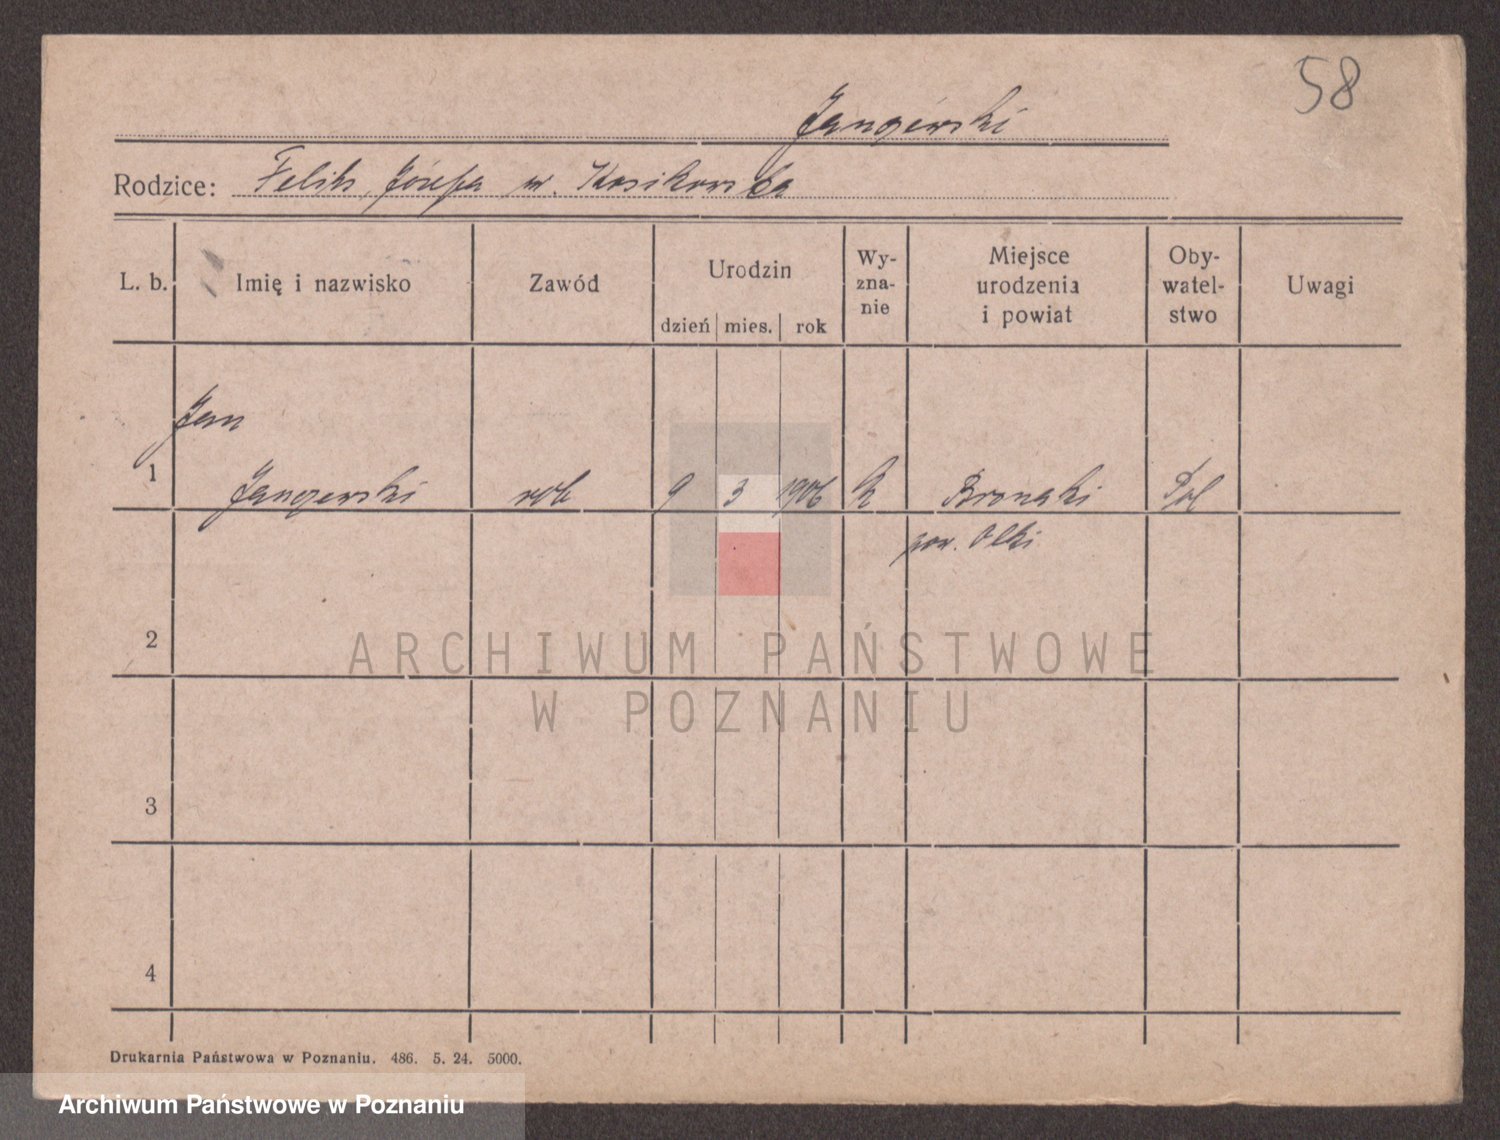 58
Jangierski
Rodzice: Feliks, Józefa ur. Kosikowska
L. b. Imię i nazwisko Zawód Urodzin dzień mies. rok Wy-zna-nie Miejsce urodzenia i powiat Oby-watel-stwo Uwagi
Jan
1 Jangierski rob 9 3 1906 k Pol
pow.
2
ARCHIWUM PAŃSTWOWE
W POZNANIU
3
4
Drukarnia Państwowa w Poznaniu. 486. 5. 24. 5000.
Archiwum Państwowe w Poznaniu